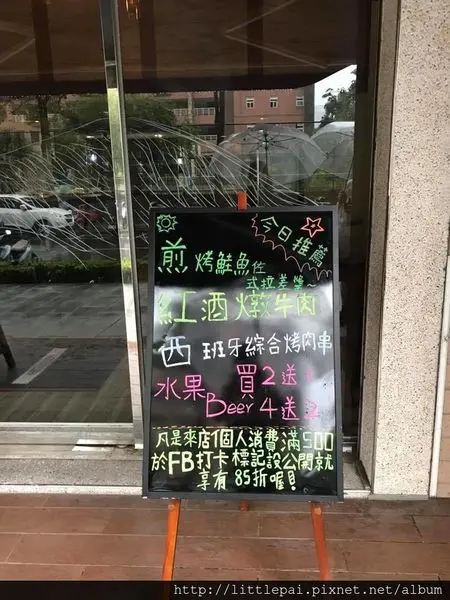 今日推薦
煎烤鮭魚佐
紅酒燉牛肉
西班牙綜合烤肉串
水果 買2送1
Beer 4送2
凡是來店個人消費滿500
於FB打卡標記設公開就
享有85折喔!
http://littlepai.pixnet.net/album